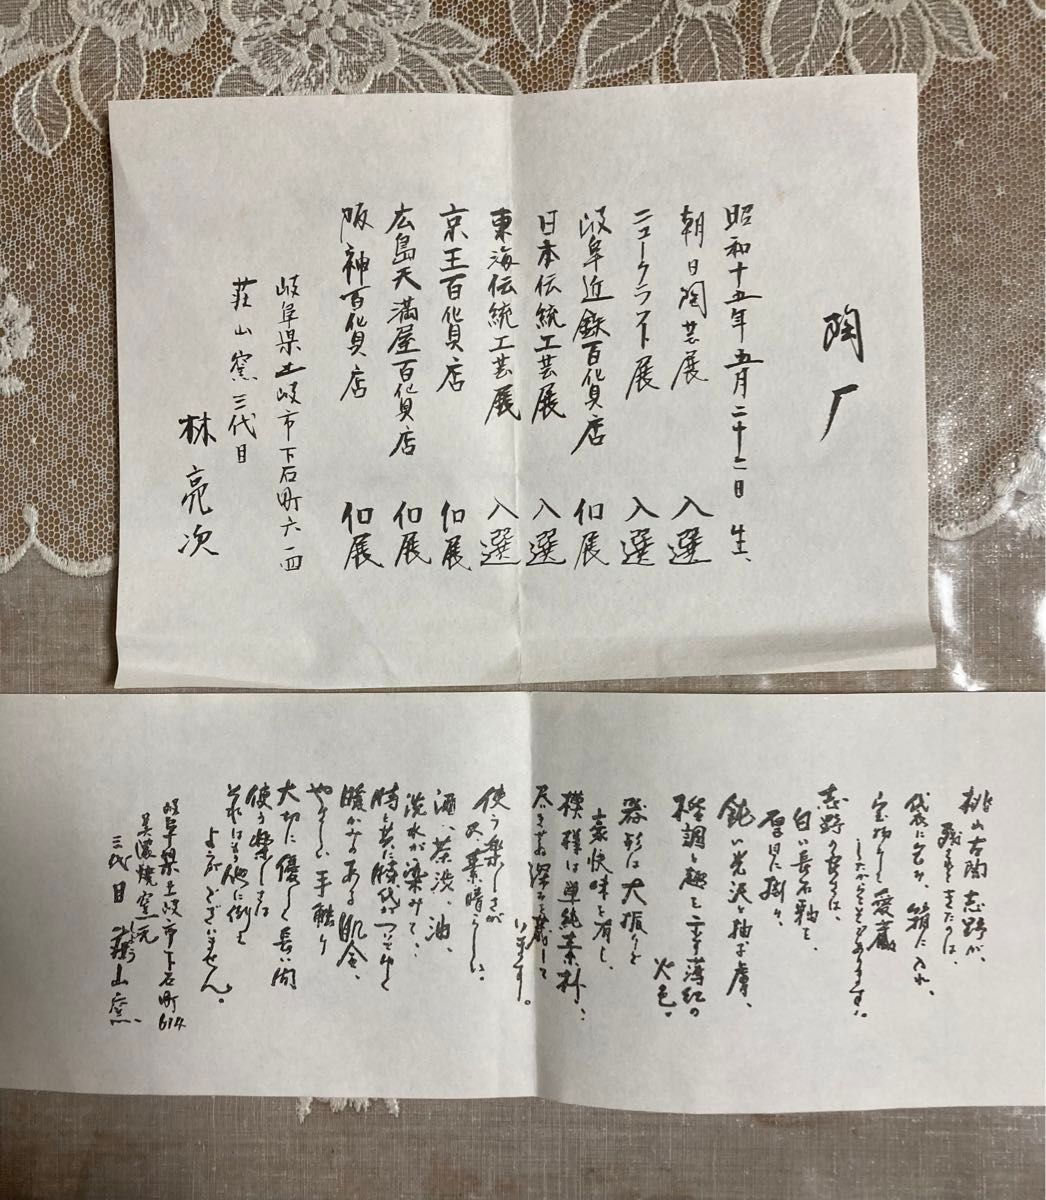 陶厂
昭和十五年五月二十二日 生、
朝日陶芸展 入選
ニュークラフト展 入選
岐阜近鉄百貨店 個展
日本伝統工芸展 入選
東海伝統工芸展 入選
京王百貨店 個展
広島天満屋百貨店 個展
阪神百貨店 個展
岐阜県土岐市下石町六一四
荘山窯三代目
林亮次
桃山古陶志野が、
残されてきたのは、
袋衣に包み、箱に入れ
宝物として愛蔵
したからこそであります。
志野の良さは、
白い長石釉を、
厚目に掛け、
鈍い光沢と柚子膚、
階調と趣を二す薄紅の
火色。
器形は大振りを
豪快味を有し、
模様は単純素朴、
尽きせぬ深さを蔵して
います。
使う楽しさが
又、素晴らしい。
酒、茶渋、油、
洗水が染みて、
時と共に時代がついてゆく
暖かみのある肌合、
やさしい手触り
大切に優しく長い間
使う楽しさは
それはもう他に例え
ようがございません。
岐阜県土岐市下石町614
美濃焼窯元
三代目 荘山窯